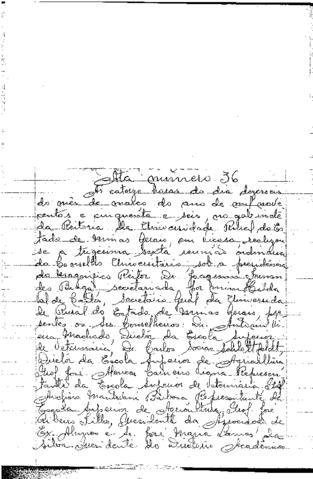 Ata número 36
As catorze horas do dia dezesseis
do mês de março do ano de mil nove
centos e cinquenta e seis, no gabinete
da Reitoria da Universidade Rural do Es
tado de Minas Gerais, em Viçosa, realizou
se a trigésima sexta reunião ordinária
do Conselho Universitário sob a presidência
do Magnífico Reitor Dr. Joaquim Fernan
des Braga, secretariada por mim
de Secretário Geral da Universida
de Rural do Estado de Minas Gerais, pre
sentes os Srs. Conselheiros: Dr. Antônio Vi
eira Machado, Diretor da Escola Superior
de Veterinária, Dr. Carlos
Diretor da Escola Superior de Agricultura,
Prof. José Carneiro Viana, Represen
tante da Escola Superior de Veterinária, Prof.
Barbosa, Representante da
Escola Superior de Agricultura, Prof. José
de Filho, Presidente da Associação de
Ex-Alunos e Sr. José Maria Lamas da
Silva, Presidente do Diretório Acadêmico